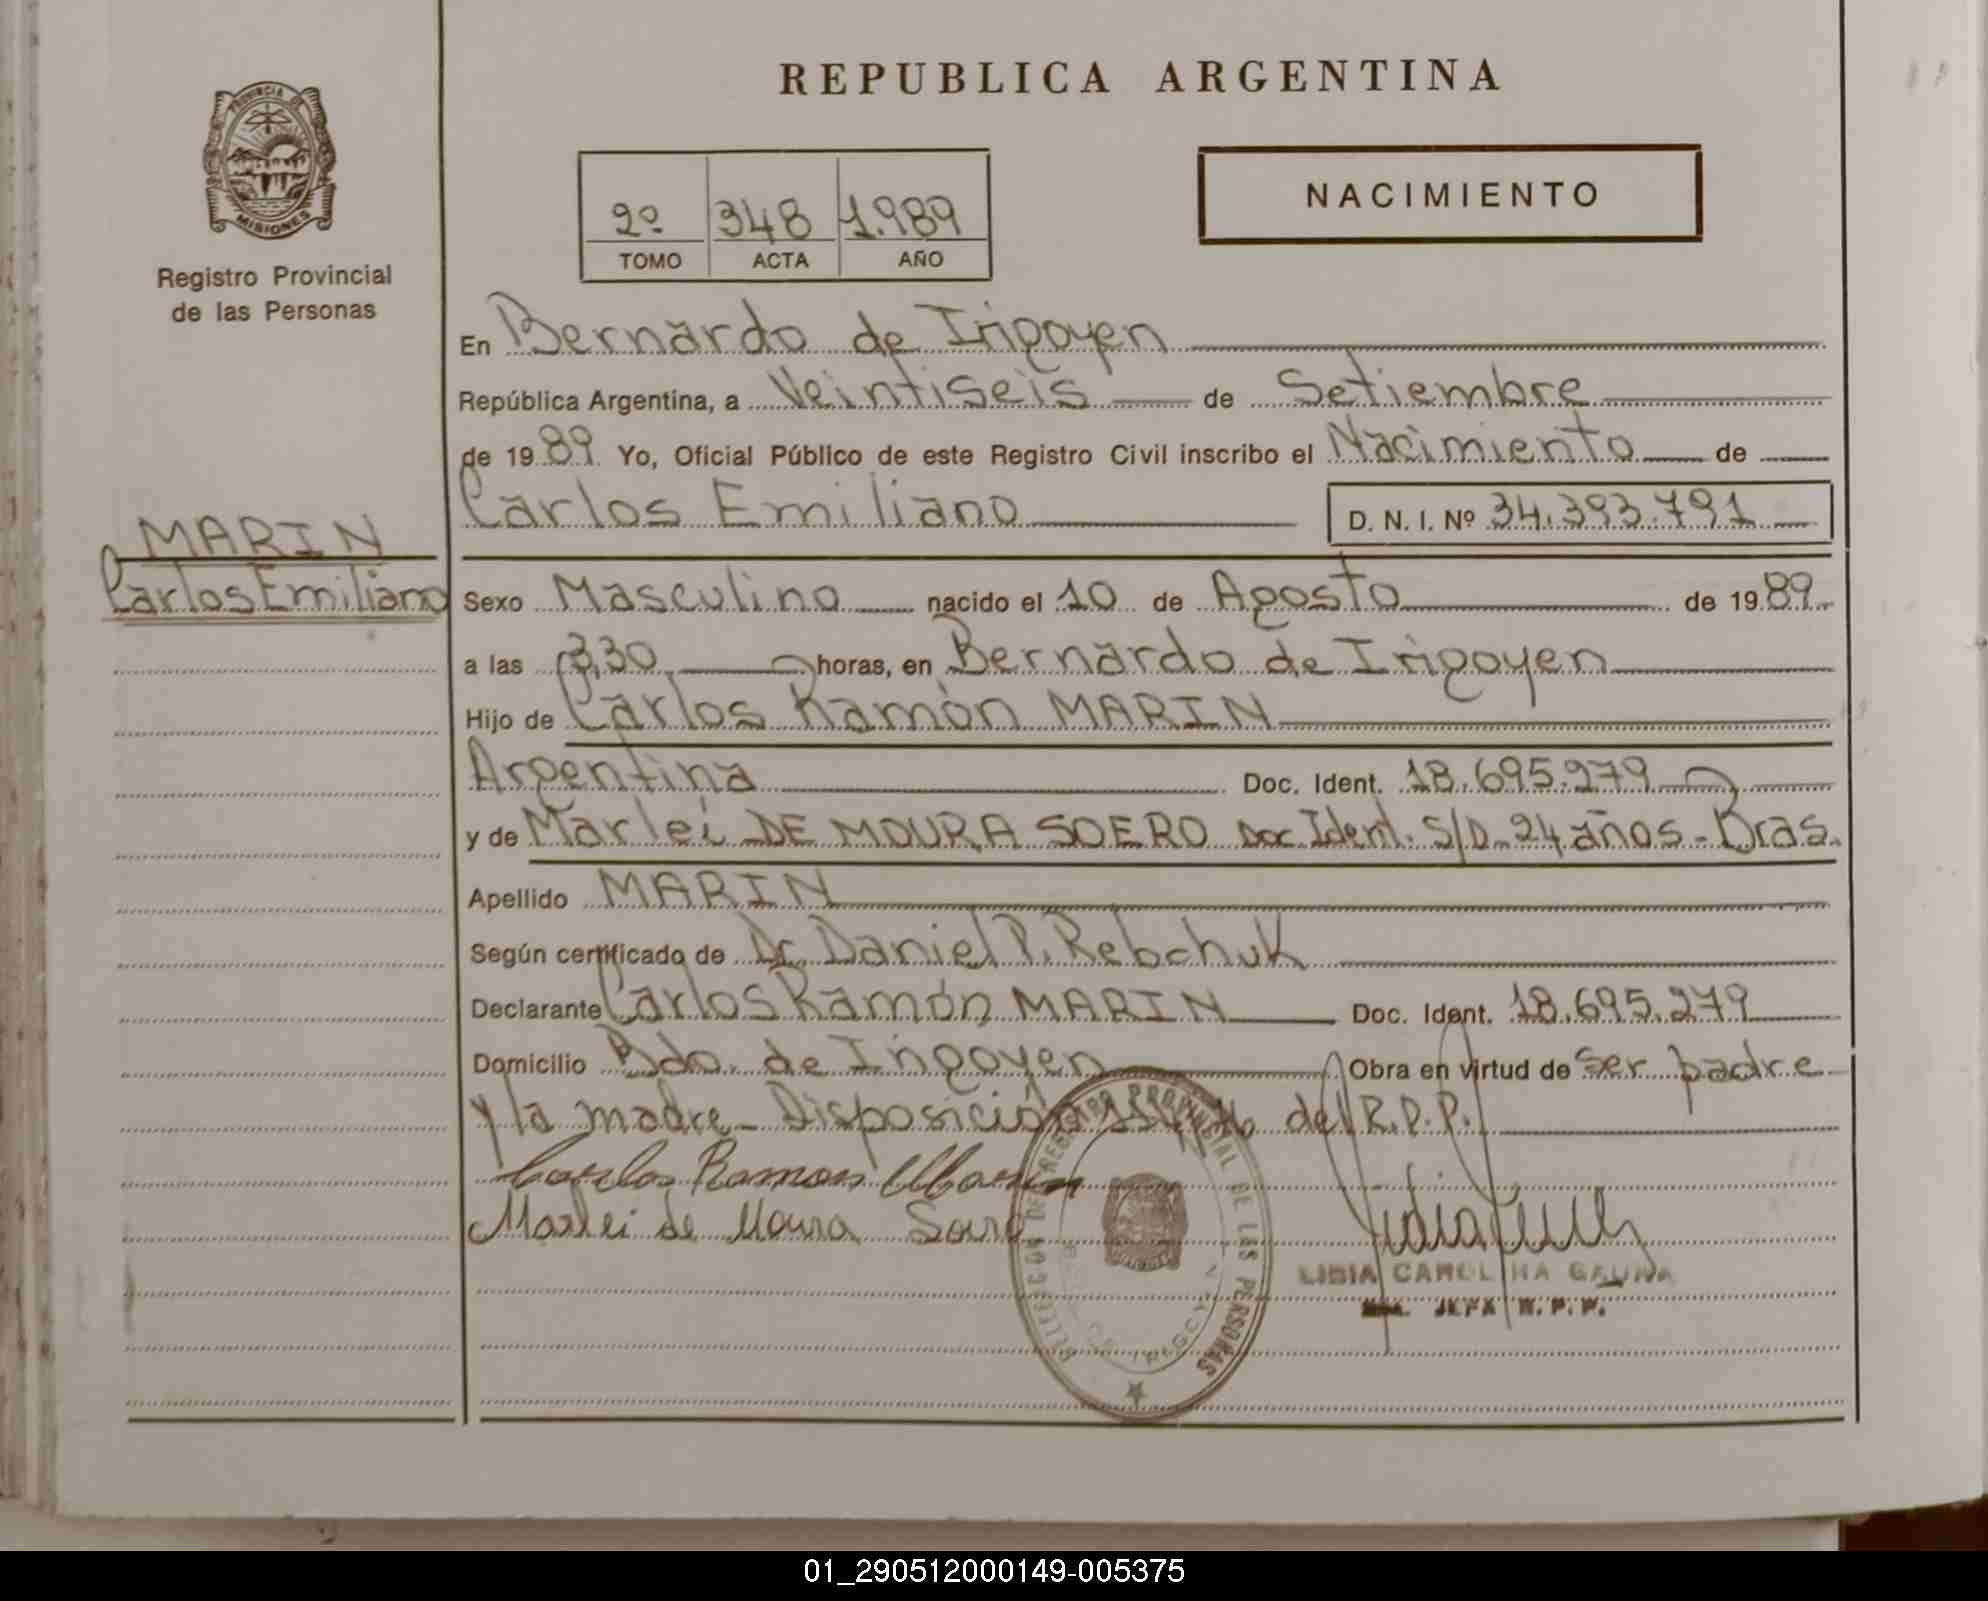 REPUBLICA ARGENTINA
PROVINCIA DE
MISIONES
Registro Provincial
de las Personas
2º 348 1.989
TOMO ACTA AÑO
NACIMIENTO
En Bernardo de Irigoyen
República Argentina, a Veintiseis de Setiembre
de 1989 Yo, Oficial Público de este Registro Civil inscribo el Nacimiento de
Carlos Emiliano D. N. I. Nº 34.393.791
MARIN
Carlos Emiliano
Sexo Masculino nacido el 10 de Agosto de 1989
a las 3,30 horas, en Bernardo de Irigoyen
Hijo de Carlos Ramón MARIN
Argentina Doc. Ident. 18.695.279
y de Marlei DE MOURA SOERO Doc. Ident. S/D- 24 años - Bras.
Apellido MARIN
Según certificado de Dr. Daniel P. Rebchuk
Declarante Carlos Ramón MARIN Doc. Ident. 18.695.279
Domicilio Bdo. de Irigoyen Obra en virtud de ser padre
y la madre - Disposición del R.P.P.
Carlos Ramon Marin
Marlei de Moura Soero
REGISTRO PROVINCIAL DE LAS PERSONAS
LIDIA CAROLINA GAUNA
JEFA R.P.P.
01_290512000149-005375